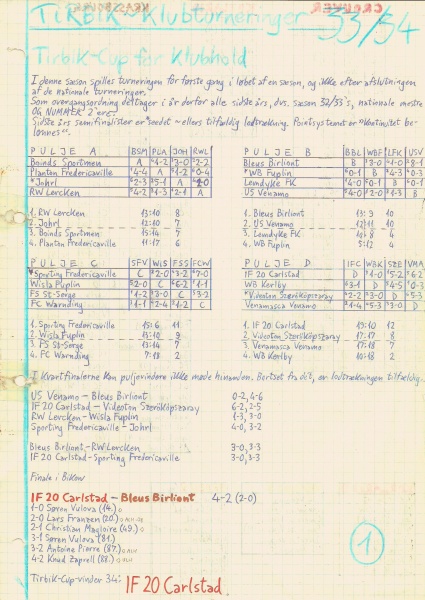 TirBiK-Klubturneringer 33/34
TirbiK-Cup for Klubhold
I denne sæson spilles turneringen for første gang i løbet af en sæson, og ikke efter afslutningen
af de nationale turneringer.
Som overgangsordning deltager i år derfor alle sidste års, dvs. sæson 32/33's, nationale mestre
OG NUMMER 2'ere.
Sidste års semifinalister er seedet - ellers tilfældig lodtrækning. Pointsystemet er "Kontinuitet be-
lønnes".
PULJE A BSM PLA JOH RWL
Boinds Sportmen A 1-2 3-0 2-2
Planton Fredericaville 4-4 A 1-2 0-4
*Johrl 2-3 5-1 A
RW Lercken 4-2 1-3 2-1 A
1. RW Lercken 13:10 8
2. Johrl 12:10 7
3. Boinds Sportmen 15:14 7
4. Planton Fredericaville 11:17 6
PULJE B BBL WBF LFK USV
Bleus Birliont B 3-0 1-0 8-1
*WB Fuplin 0-1 B 4-3 0-3
Lemdyke FK 4-0 0-1 B 0-1
US Venamo 4-0 2-0 1-3 B
1. Bleus Birliont 13:9 10
2. US Venamo 12:11 10
3. Lemdyke FK 10:8 4
4. WB Fuplin 5:12 4
PULJE C SFV WIS FSS FCW
*Sporting Fredericaville C 2-0 3-2 7-0
Wisla Fuplin 2-0 C 6-2 1-1
FS St-Serge 1-2 3-0 C 3-2
FC Warnding 1-1 2-4 1-2 C
1. Sporting Fredericaville 15:6 11
2. Wisla Fuplin 15:10 9
3. FS St-Serge 13:14 7
4. FC Warnding 7:18 2
PULJE D IFC WBK SZE VMA
IF 20 Carlstad D 1-0 5-2 6-2
WB Kerlby 3-1 D 4-5 0-3
*Videoton Szeróköpszaray 2-2 3-0 D 5-3
Venamassca Venamo 1-4 5-3 3-0 D
1. IF 20 Carlstad 19:10 12
2. Videoton Szeróköpszaray 17:17 8
3. Venamassca Venamo 17:18 7
4. WB Kerlby 10:18 2
I Kvartfinalerne kan puljevindere ikke møde hinanden. Bortset fra dét, er lodtrækningen tilfældig.
US Venamo - Bleus Birliont 0-2, 4-6
IF 20 Carlstad - Videoton Szeróköpszaray 6-2, 2-5
RW Lercken - Wisla Fuplin 1-3, 3-0
Sporting Fredericaville - Johrl 4-0, 3-2
Bleus Birliont - RW Lercken 3-0, 3-3
IF 20 Carlstad - Sporting Fredericaville 3-0, 3-3
Finale i Bikow
IF 20 Carlstad - Bleus Birliont 4-2 (2-0)
1-0 Søren Vulova (14.)
2-0 Lars Franzen (20.)
2-1 Christian Magloire (49.)
3-1 Søren Vulova (81.)
3-2 Antoine Pierre (87.)
4-2 Knud Zaprell (88.)
TirbiK-Cup-vinder 34: IF 20 Carlstad.
1